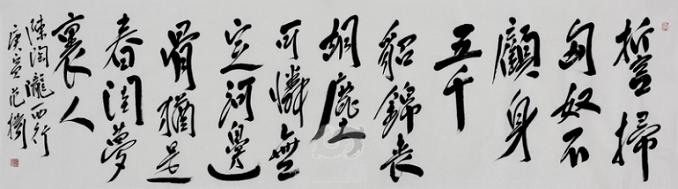 誓掃
匈奴不
顧身
五千
貂錦喪
胡塵
可憐無
定河邊
骨猶是
春閨夢
裏人
陳陶隴西行
庚寅